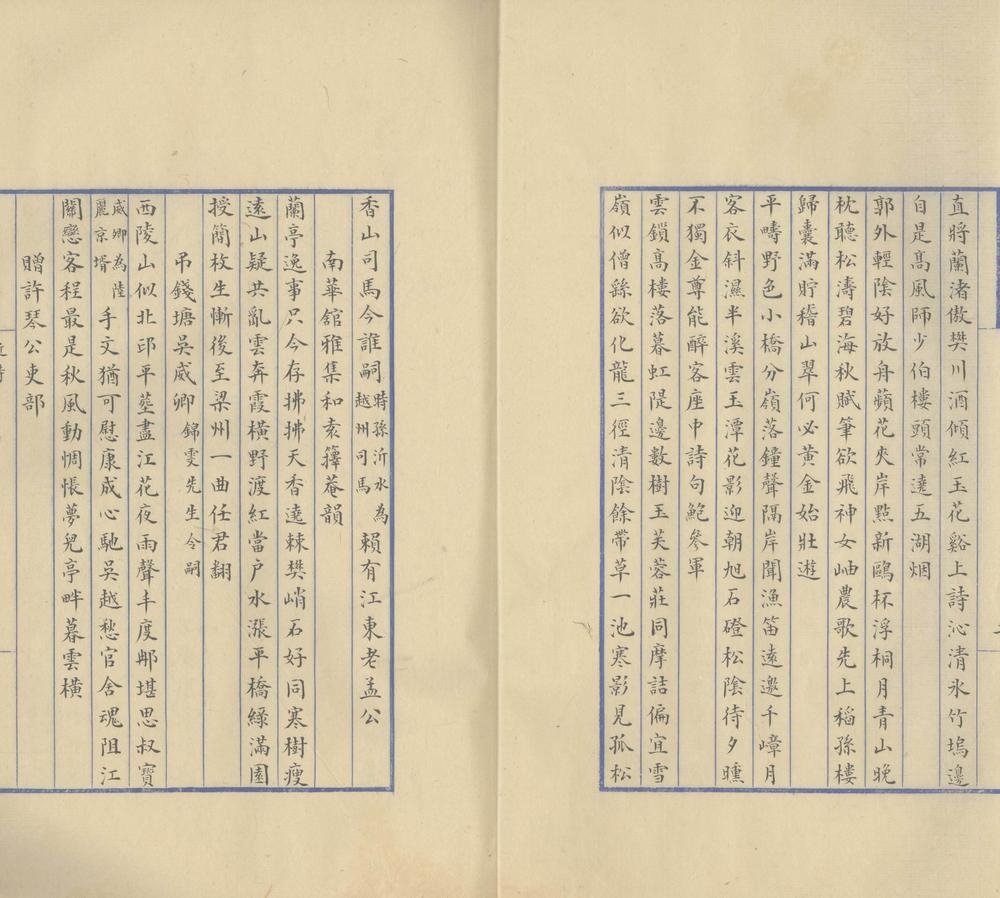 直將蘭渚傲樊川酒傾紅玉花谿上詩沁清氷竹塢邊
自是髙風師少伯樓頭常遶五湖烟
郭外輕陰好放舟蘋花夾岸㸃新鷗杯浮桐月青山晚
枕聽松濤碧海秋賦筆欲飛神女岫農歌先上稻孫樓
歸囊滿貯稽山翠何必黄金始壯遊
平疇野色小橋分嶺落鐘聲隔岸聞漁笛遠邀千嶂月
客衣斜濕半溪雲玉潭花影迎朝旭石磴松陰待夕曛
不獨金尊能醉客座中詩句鮑參軍
雲鎖髙樓落暮虹隄邊數樹玉芙蓉莊同摩詰偏宜雪
嶺似僧繇欲化龍三徑清陰餘帶草一池寒影見孤松
香山司馬今誰嗣時孫沂水為越州司馬賴有江東老孟公
南華舘雅集和袁籜菴韻
蘭亭逸事只今存拂拂天香遶棘樊峭石好同寒樹瘦
遠山疑共亂雲奔霞橫野渡紅當户水漲平橋綠滿園
授簡枚生慚後至梁州一曲任君翻
弔錢塘吳威卿錦雯先生令嗣
西陵山似北邙平塟盡江花夜雨聲丰度郍堪思叔寳
威卿為陸麗京壻手文猶可慰康成心馳吳越愁官舍魂阻江
關戀客程最是秋風動惆悵夢兒亭畔暮雲橫
贈許琴公吏部